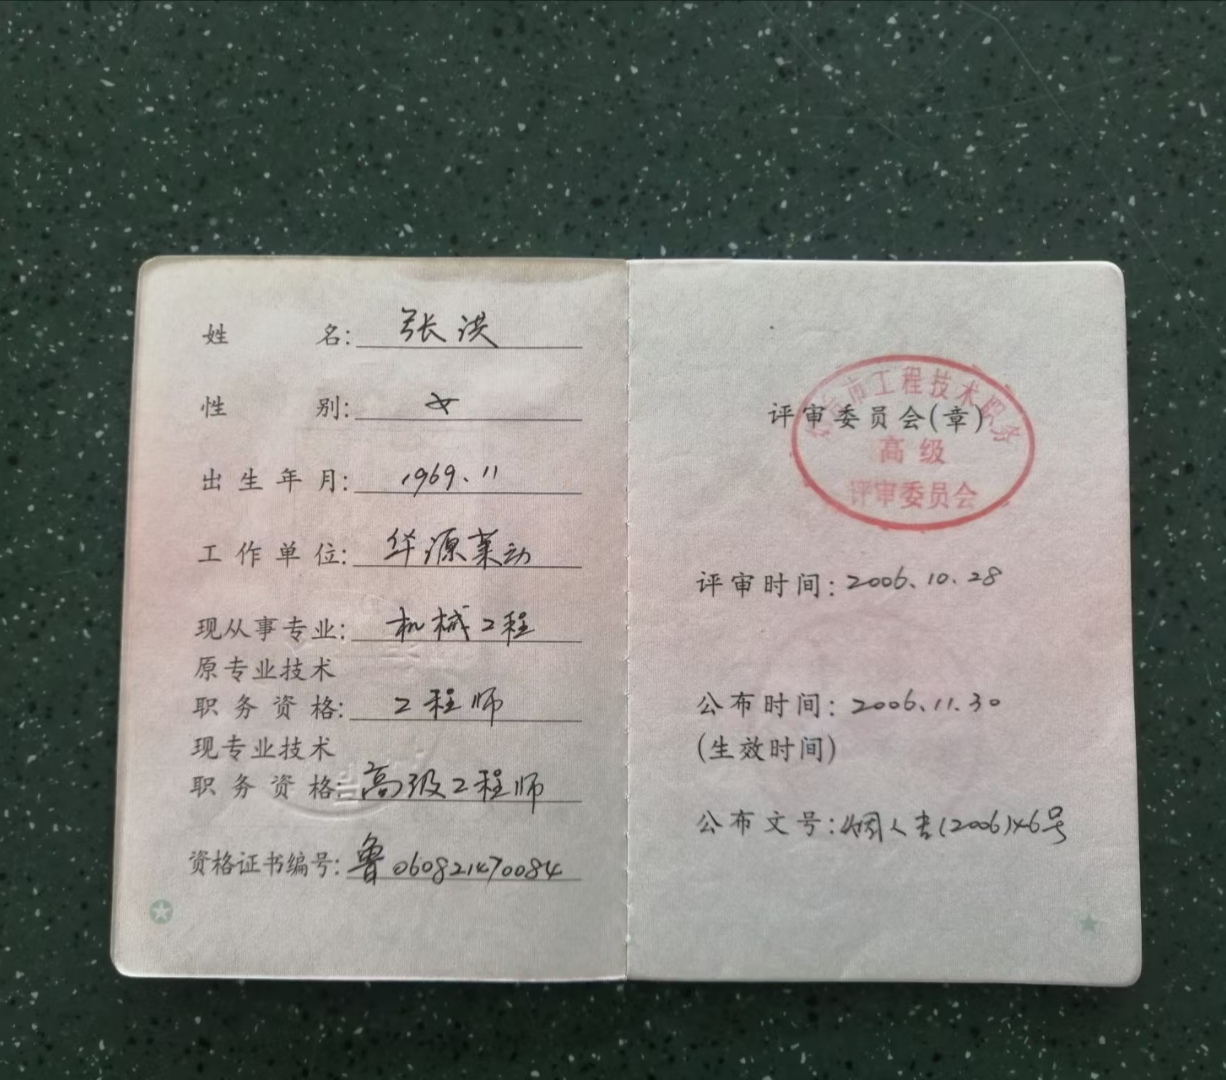 姓名:张洪
性别:女
出生年月:1969.11
工作单位:华源莱动
现从事专业:机械工程
原专业技术
职务资格:工程师
现专业技术
职务资格:高级工程师
资格证书编号:鲁060821470084
市工程技术职务
评审委员会(章)
高级
评审委员会
评审时间:2006.10.28
公布时间:2006.11.30
(生效时间)
公布文号:烟人专(2006)46号